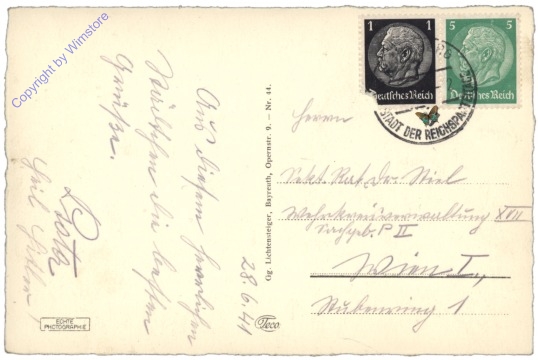 Copyright by Wimstore
Aus diesem herrlichen
Nürnberg die besten
Grüße.
Heil Hitler!
28.6.41
ECHTE
PHOTOGRAPHIE
Gg. Lichtensteiger, Bayreuth, Opernstr. 9. – Nr. 44.
Teco
1 1
Deutsches Reich
5 5
Deutsches Reich
STADT DER REICHSPA
Herrn
Rat Dr. Stiel
Wehrkreisverwaltung XVII
Sachgeb. P II
Wien I.,
Stubenring 1